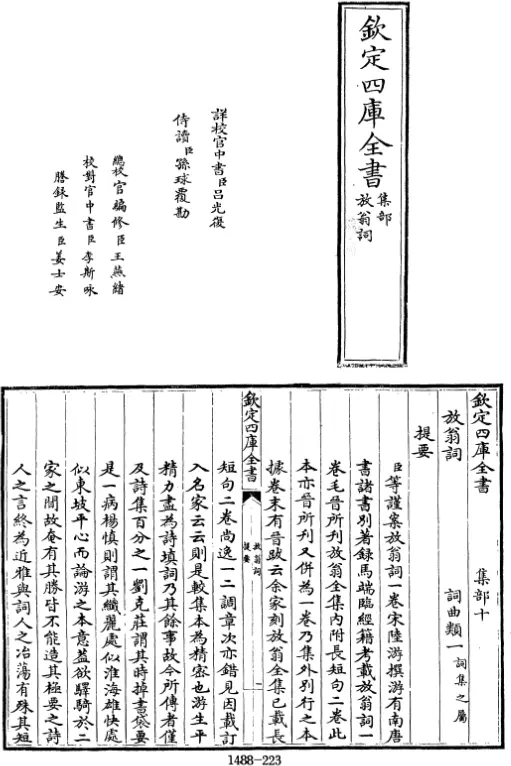 欽定四庫全書
集部
放翁詞
詳校官中書臣呂光復
侍讀臣孫球覆勘
總校官編修臣王燕緒
校對官中書臣李斯咏
謄録監生臣姜士安
欽定四庫全書 集部十
放翁詞 詞曲類一 詞集之屬
提要
臣等謹案放翁詞一卷宋陸游撰游有南唐
書諸書别著録馬端臨經籍考載放翁詞一
卷毛晉所刊放翁全集内附長短句二卷此
本亦晉所刊又併為一卷乃集外别行之本
據卷末有晉跋云余家刻放翁全集已載長
欽定四庫全書
放翁詞
提要
二
短句二卷尚逸一二調章次亦錯見因載訂
入名家云云則是較集本為精密也游生平
精力盡為詩填詞乃其餘事故今所傳者僅
及詩集百分之一劉克莊謂其時掉書袋要
是一病楊慎則謂其纖麗處似淮海雄快處
似東坡平心而論游之本意蓋欲驛騎於二
家之間故奄有其勝皆不能造其極要之詩
人之言終為近雅與詞人之冶蕩有殊其短
1488-223